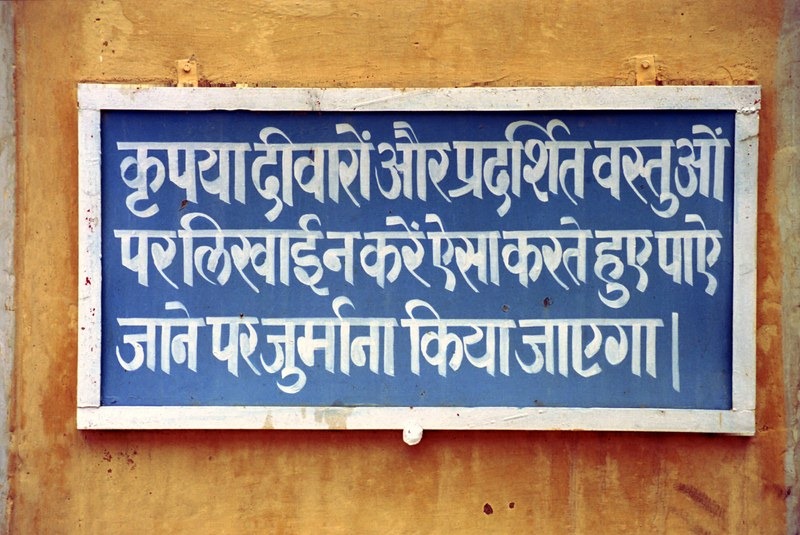 कृपया दीवारों और प्रदर्शित वस्तुओं
पर लिखाई न करें ऐसा करते हुए पाऐ
जाने पर जुर्माना किया जाएगा।